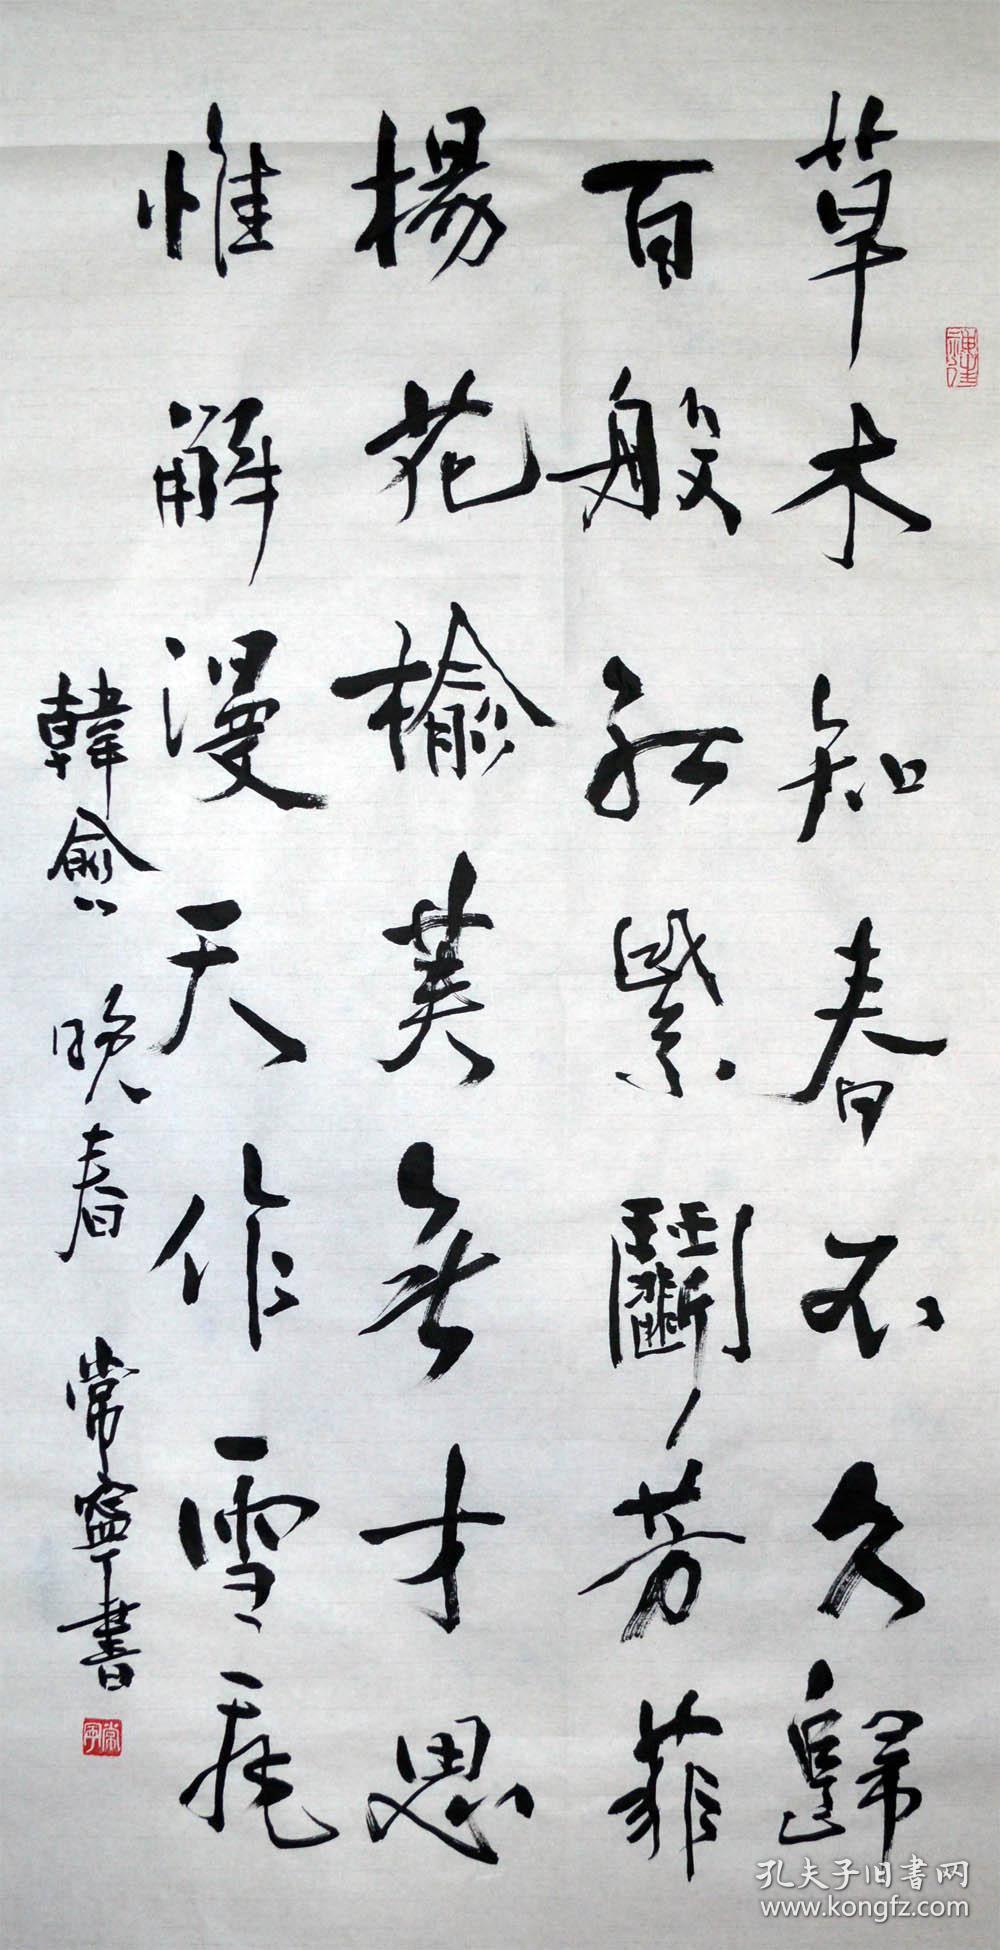 草木知春不久歸
百般紅紫鬬芳菲
楊花榆莢無才思
惟解漫天作雪飛
韓愈 晚春 常寧書
常寧
孔夫子旧書网
www.kongfz.com